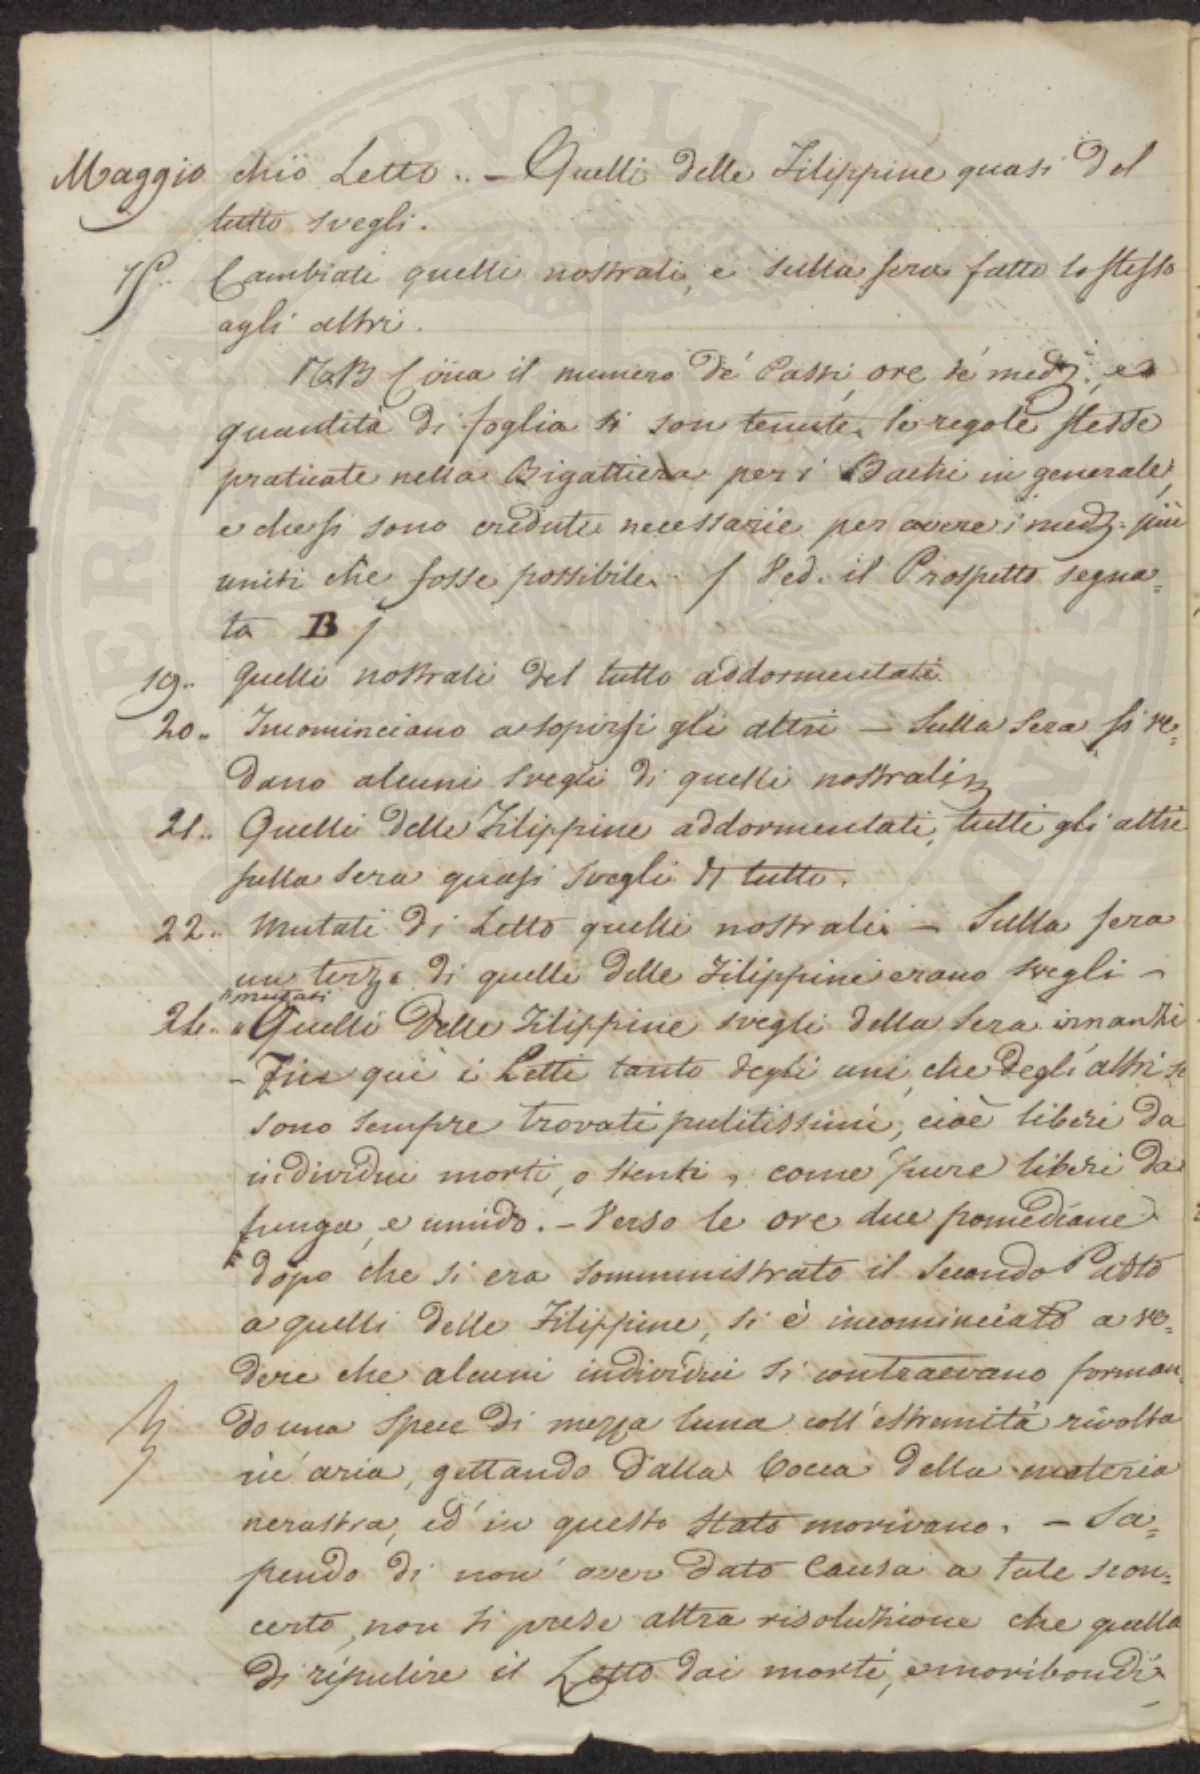 Maggio chio Letto .. – Quelli delle Filippine quasi del
tutto svegli.
18.. Cambiati quelli nostrali, e sulla sera fatto lo stesso
agli altri.
NaB Circa il numero de' Pasti, ore de' med.i, e
quantità di foglia si son tenute le regole stesse
praticate nella Bigattiera per i Bachi in generale,
e che si sono credute necessarie per avere i med. più
uniti che fosse possibile. / Ved. il Prospetto segna=
to B /
19.. Quelli nostrali del tutto addormentati
20.. Incominciano a sopirsi gli altri – Sulla Sera si ve=
dano alcuni svegli di quelli nostrali
21.. Quelli delle Filippine addormentati, tutti gli altri
sulla Sera quasi svegli di tutto.
22.. Mutati di Letto quelli nostrali. – Sulla sera
un terzo di quelli delle Filippine erano svegli –
mutati
24.. Quelli delle Filippine svegli della Sera innanzi
– Fin qui i Letti tanto degli uni, che degl'altri si
sono sempre trovati pulitissimi, cioè liberi da
individui morti, o stenti, come pure liberi da
funga, e umido. – Verso le ore due pomediane
dopo che si era somministrato il Secondo Pasto
a quelli delle Filippine, si è incominciato a ve=
dere che alcuni individui si contraevano forman=
do una Specie di mezza luna coll'estremità rivolta
in aria, gettando dalla bocca della materia
nerastra, ed in questo stato morivano. – Sa=
pendo di non aver dato causa a tale scon=
certo, non si prese altra risoluzione che quella
di ripulire il Letto dai morti, e moribondi